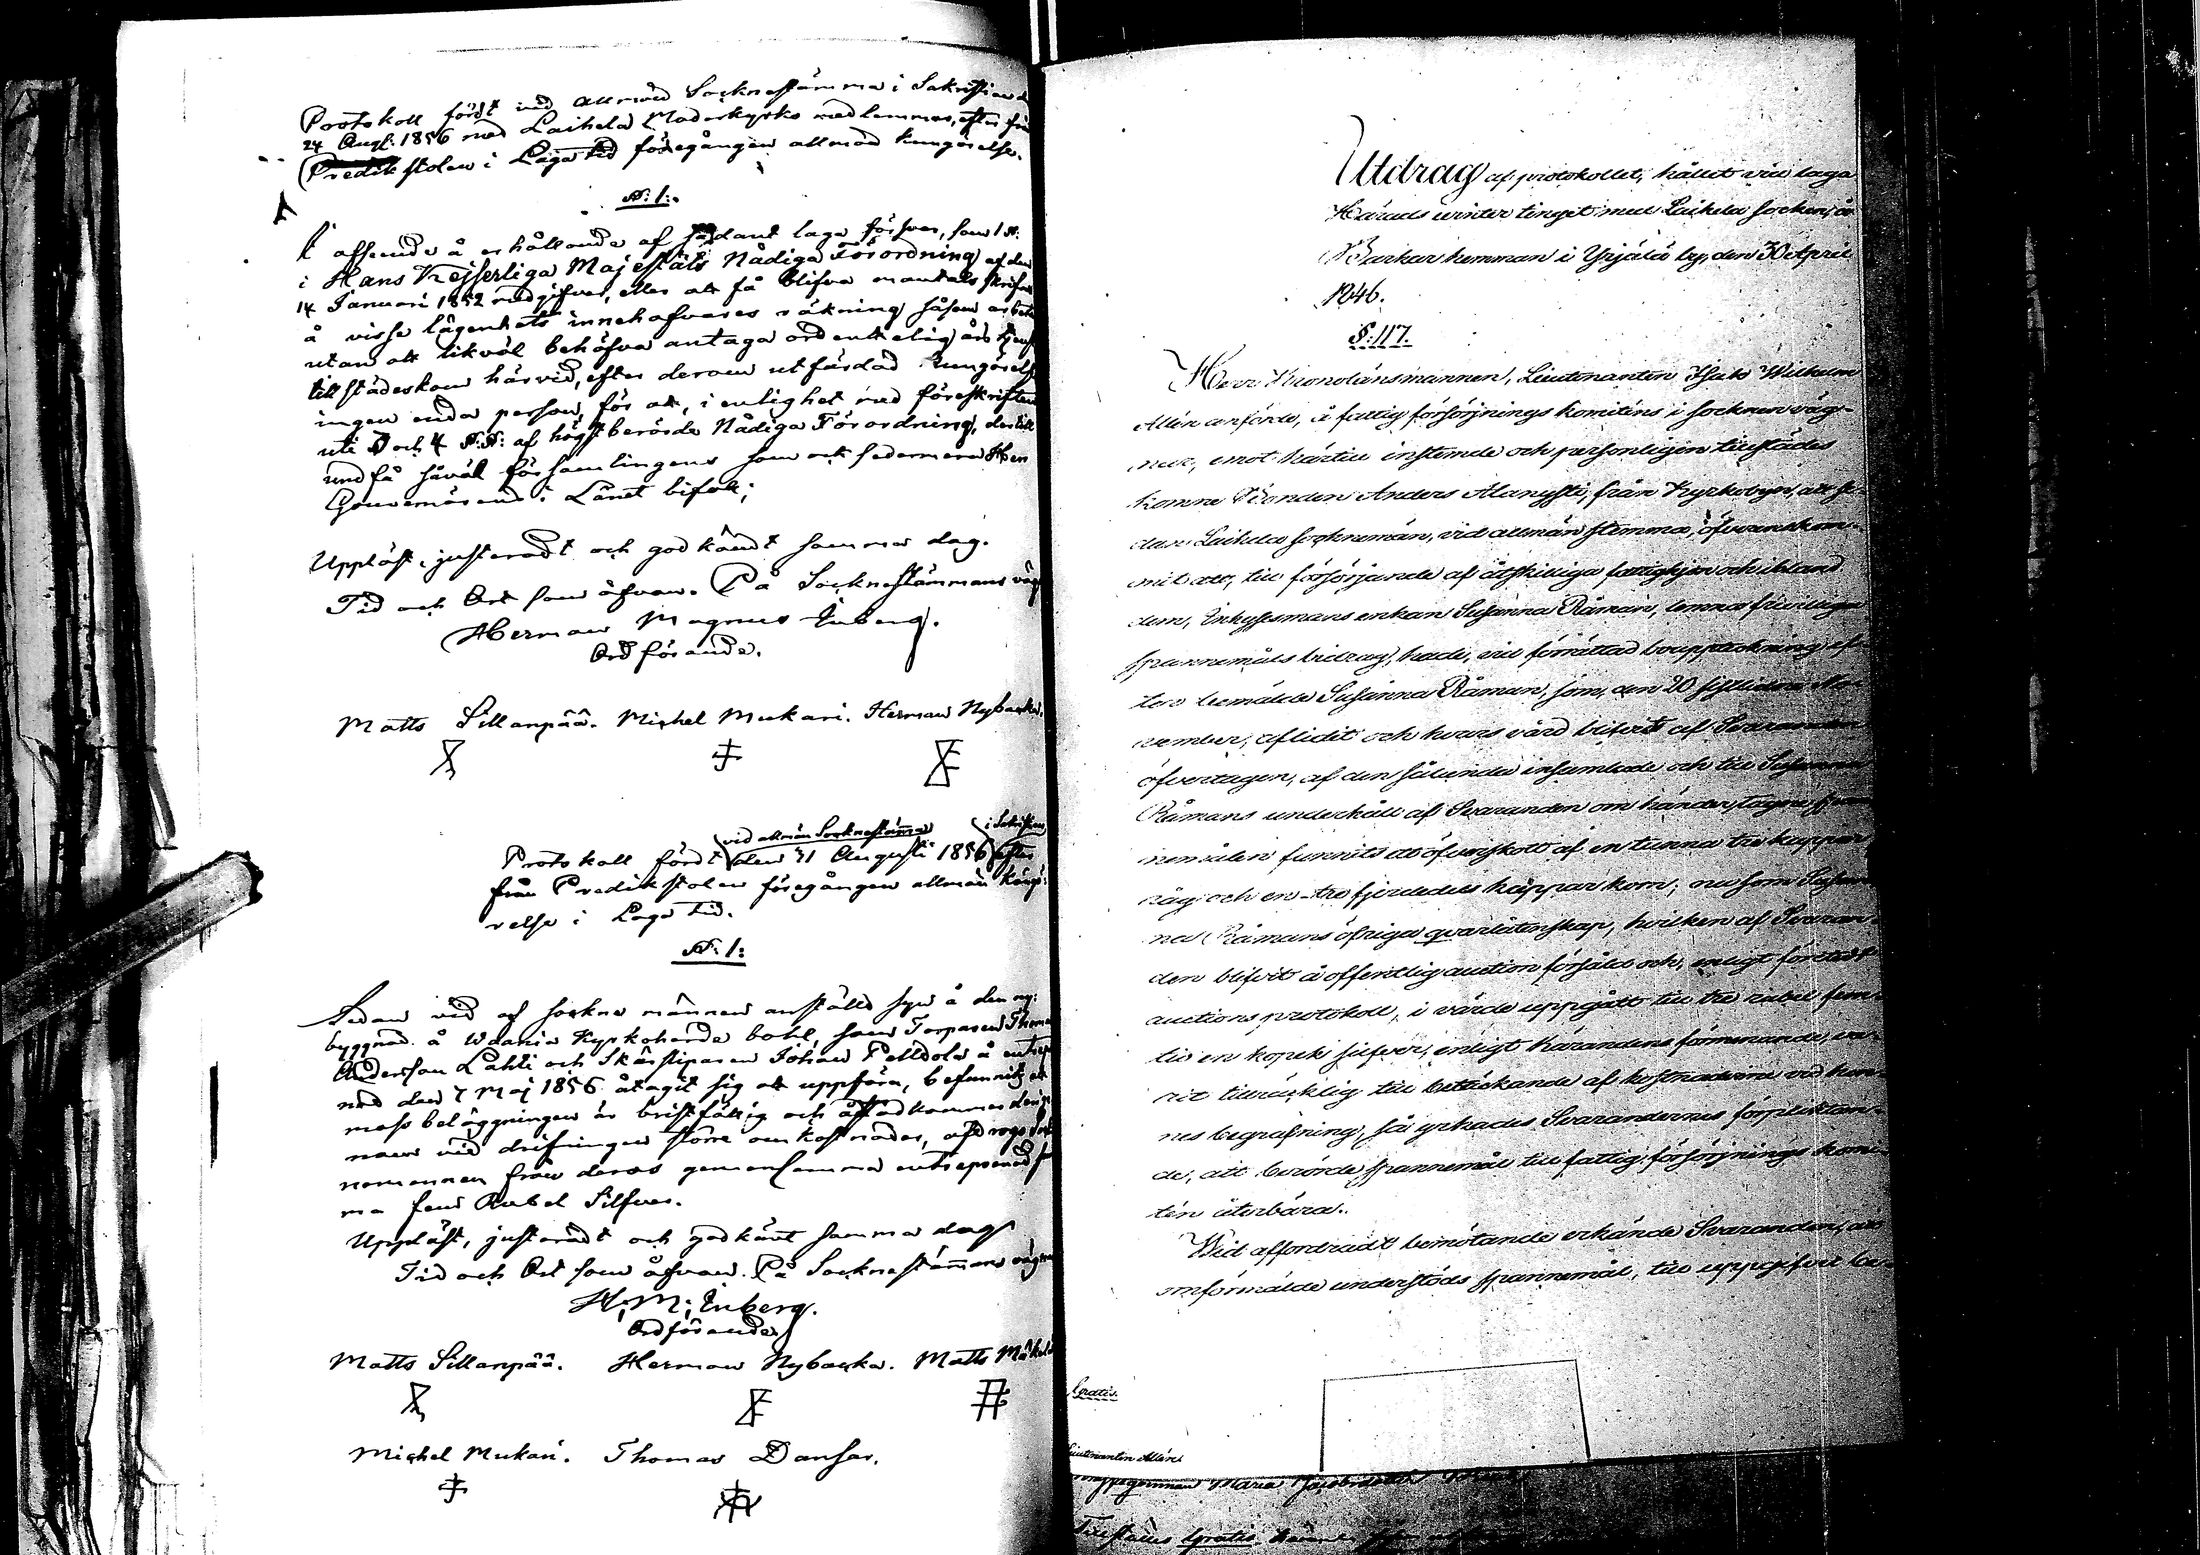 Protokoll fördt vid allmän Socknestämma i Sakristian d.
24 Aug: 1856 med Laihela Moderkyrko medlemmar, efter från
Predikstolen i Laga tid föregången allmän kungörelse.
§: 1:
I afseende å erhållande af sådant laga försvar, som 1 §:
i Hans Kejserliga Majestäts Nådiga Förordning af den
14 Januari 1852 medgifver, eller att få blifva mantals skrifne
å visse lägenhets innehafvares räkning såsom arbets
utan att likväl behöfva antaga ordentelig års tjenst
tillstädeskom härvid, efter derom utfärdad Kungörelse
ingen enda person, för att, i enlighet med föreskriften
uti 3 och 4 §.§: af högstberörde Nådiga Förordning, dertill
undfå såväl församlingens som ock sedermera Herr
Gouvernörens i Länet bifall;
Uppläst, justeradt och godkändt samma dag.
Tid och Ort som åfvan. På Socknestämmans väg
Herman Magnus Inberg.
Ordförande.
Matts Sillanpää. Michel Mukari. Herman Nybacka.
vid allmän Socknestämma i Sakristian
Protokoll fördt den 31 Augusti 1856 efter
från Predikstolen föregången allmän kungö-
relse i Laga tid.
§: 1:
Sedan vid af socknemännen anställd syn å den ny:
byggnad å Waania Kyrkoherde bohl, som Torparen Thomas
Andersson Lahti och Skärstiparen Johan Palldola å entrep
nad den 7 Maj 1856 åtagit sig att uppföra, befunnits att
mossbeläggningen är bristfällig och åstadkommer derige
nom vid drifningen större omkostnader, afdrogs
nomannen från deras gemensamma entreprenad
ma fem Rubel Silfver.
Uppläst, justeradt och godkänt samma dag
Tid och Ort som åfvan. På Socknestämmans vägnar
H: M: Inberg.
Ordförande
Matts Sillanpää. Herman Nybacka. Matts Mäkelä
Michel Mukari. Thomas Dansar.
Utdrag af protokollet, hållet vid laga
Härads winter tinget med Laihela socken, å
Barkar hemman i Yrjälä by, den 30 April
1846.
§: 117.
Herr Kronolänsmannen, Lieutenanten Isak Wilhelm
Allén anförde, å fattig försörjnings komiténs i socknen väg-
nar, emot härtill instemde och personligen tillstädes
komne Bonden Anders Alanysti, från Kyrkobyn, att se-
dan Laihela sockneman, vid allmän stemma, öfverenskom-
mit att, till försörjande af åtskilliga fattighjon och ibland
dem, Inhysesmans enkan Susanna Råman, lemna frivilliga
spannemåls bidrag, hade, vid förrättad bouppteckning ef-
ter bemälde Susanna Råman, som, den 20 sistlidne No-
vember, aflidit och hvars vård blifvit af Svaranden
öfvertagen, af den sålunda insamlade och till Susanna
Råmans underhåll af Svaranden om händer tagna span-
nemålen funnits ett öfverskott af en tunna tre kappar
råg och en tre fjerdedels kappar korn; men som Susan-
na Råmans öfriga qvarlåtenskap, hvilken af Svaran-
den blifvit å offentlig auction försåld och, enligt företedt
auctions protokoll, i värde uppgått till tre rubel fem-
tio en kopek silfver, enligt Kärandens förmenande, va-
rit tillräcklig till betäckande af kostnaderne vid hen-
nes begrafning, så yrkades Svarandernes förpliktan-
de, att berörde spannemål till fattig försörjnings komi-
tén återbära.
Wid affordradt bemötande erkände Svaranden, att
omförmälde understöds spannemål, till uppgifvet be-
Gratis.
Lieutenanten Allén
Maria Jacobsdotter
Gratis